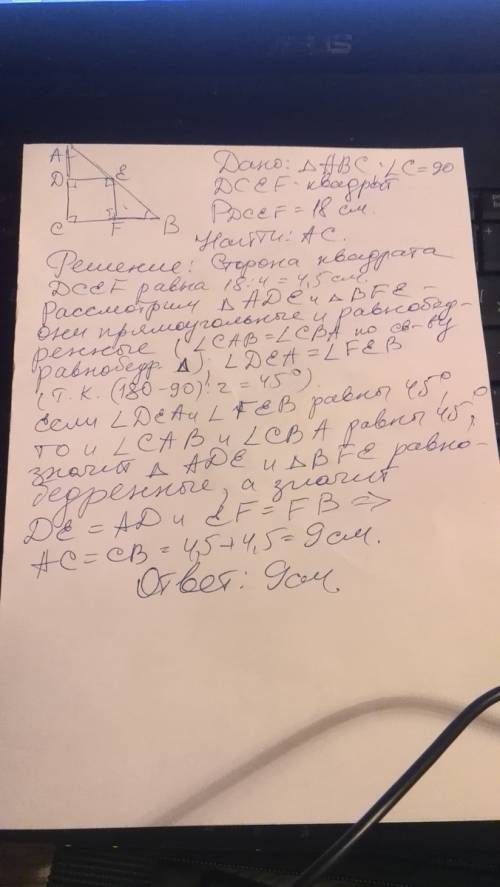 A
D
E
C
F
B
Дано: △ABC ∠C=90
DCEF-квадрат
PDCEF = 18 см.
Найти: AC.
Решение: Сторона квадрата
DCEF равна 18:4 = 4,5 см.
Рассмотрим △ADE и △BFE -
они прямоугольные и равнобед-
ренные (∠CAB=∠CBA по св-ву
равнобедр. △), ∠DEA = ∠FEB
(т.к. (180-90):2 = 45°)
если ∠DEA и ∠FEB равны 45°,
то и ∠CAB и ∠CBA равны 45°,
значит △ADE и △BFE равно-
бедренные, а значит
DE = AD и EF = FB ⇒
AC = CB = 4,5+4,5 = 9 см.
Ответ: 9 см.